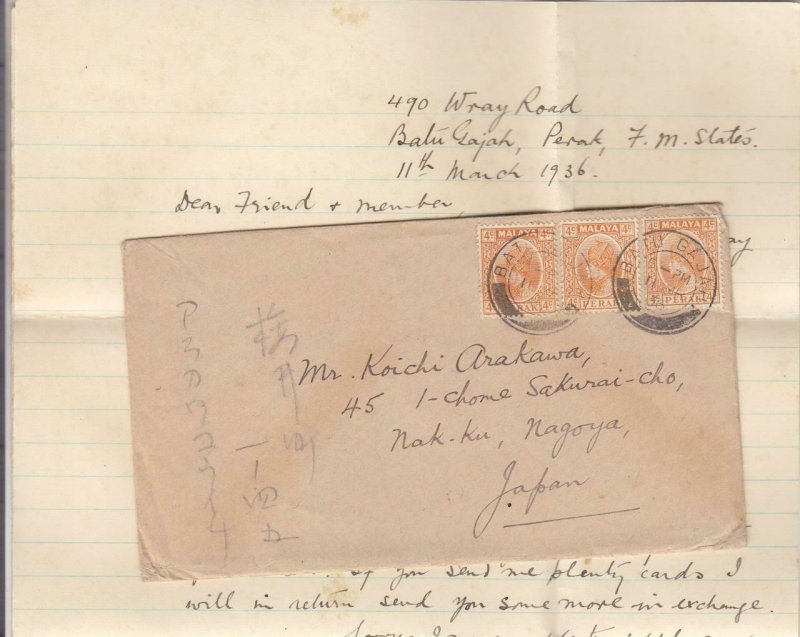 490 Wray Road
Batu Gajah, Perak, F. M. States.
11th March 1936.
Dear Friend & member,
4c MALAYA 4c
4c MALAYA 4c
4c MALAYA 4c
PERAK
PERAK
PERAK
BATU GAJAH
Mr. Koichi Arakawa,
45 1-chome Sakurai-cho,
Nak-ku, Nagoya,
Japan
アラカワコウイチ
桜井町
一ノ四五
if you send me plenty cards I
will in return send you some more in exchange.